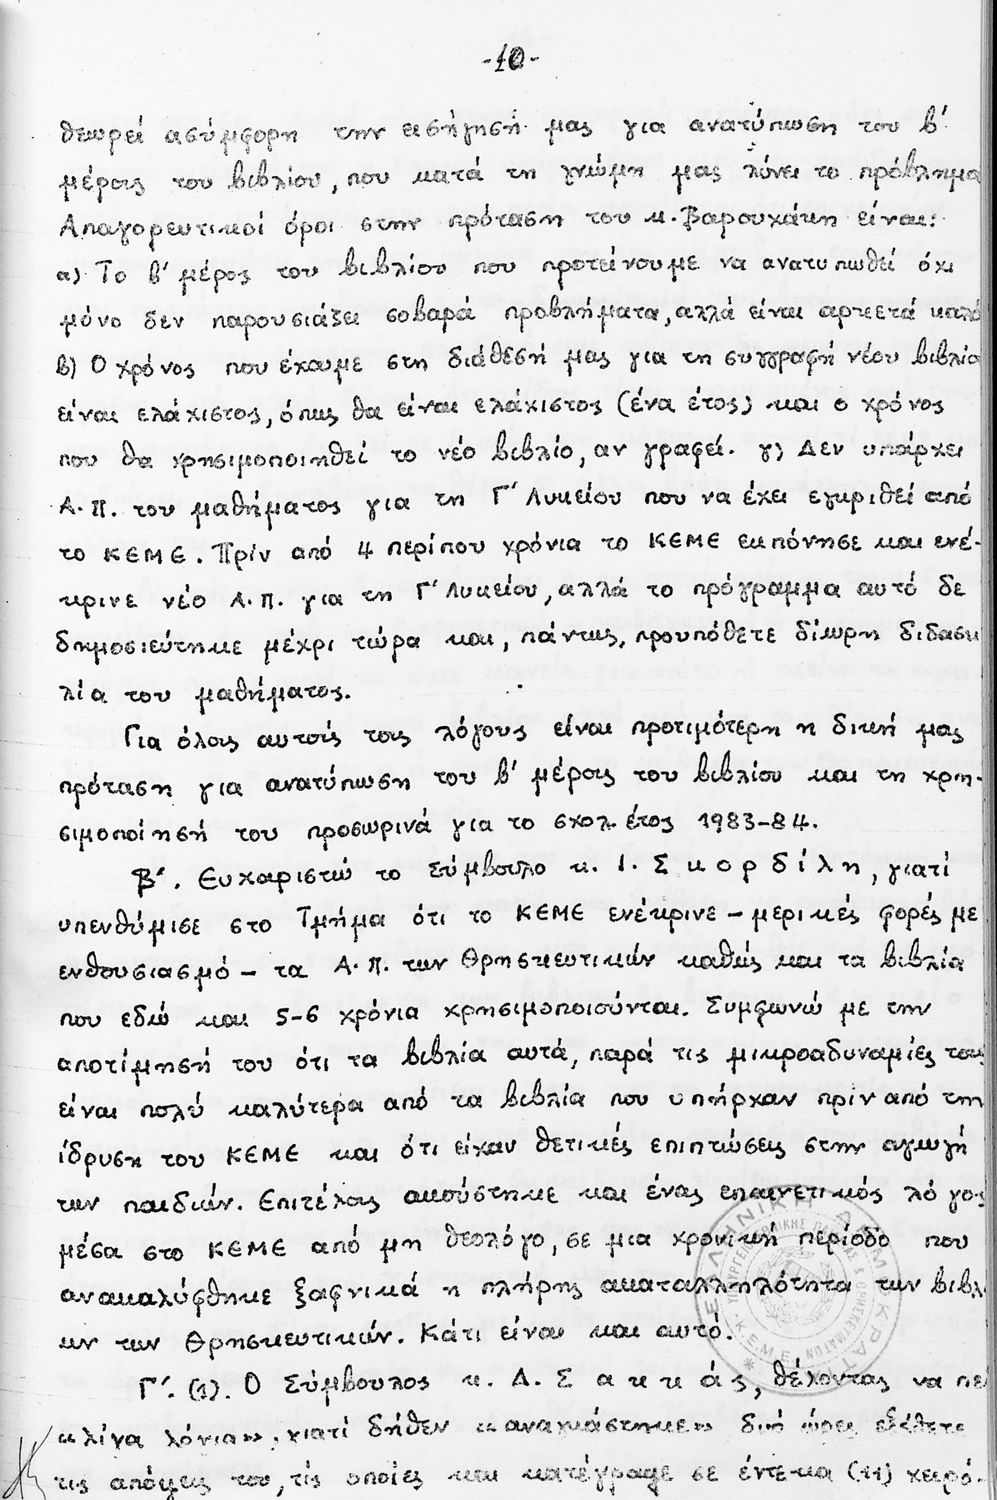 -10-
θεωρεί ασύμφορη την εισήγησή μας για ανατύπωση του β΄
μέρους του βιβλίου, που κατά τη γνώμη μας λύνει το πρόβλημα
Απαγορευτικοί όροι στην πρόταση του κ. Βαρουχάκη είναι:
α) Το β΄ μέρος του βιβλίου που προτείνουμε να ανατυπωθεί όχι
μόνο δεν παρουσιάζει σοβαρά προβλήματα, αλλά είναι αρκετά καλό
β) Ο χρόνος που έχουμε στη διάθεσή μας για τη συγγραφή νέου βιβλίο
είναι ελάχιστος, όπως θα είναι ελάχιστος (ένα έτος) και ο χρόνος
που θα χρησιμοποιηθεί το νέο βιβλίο, αν γραφεί. γ) Δεν υπάρχει
Α.Π. του μαθήματος για τη Γ΄ Λυκείου που να έχει εγκριθεί από
το ΚΕΜΕ. Πρίν από 4 περίπου χρόνια το ΚΕΜΕ εκπόνησε και ενέ-
κρινε νέο Α.Π. για τη Γ΄ Λυκείου, αλλά το πρόγραμμα αυτό δε
δημοσιεύτηκε μέχρι τώρα και, πάντως, προυπόθετε δίωρη διδασκ
λία του μαθήματος.
Για όλους αυτούς τους λόγους είναι προτιμότερη η δική μας
πρόταση για ανατύπωση του β΄ μέρους του βιβλίου και τη χρη-
σιμοποίησή του προσωρινά για το σχολ. έτος 1983-84.
Β΄. Ευχαριστώ το Σύμβουλο κ. Ι. Σκορδίλη, γιατί
υπενθύμισε στο Τμήμα ότι το ΚΕΜΕ ενέκρινε – μερικές φορές με
ενθουσιασμό – τα Α.Π. των Θρησκευτικών καθώς και τα βιβλία
που εδώ και 5-6 χρόνια χρησιμοποιούνται. Συμφωνώ με την
αποτίμησή του ότι τα βιβλία αυτά, παρά τις μικροαδυναμίες τους
είναι πολύ καλύτερα από τα βιβλία που υπήρχαν πρίν από την
ίδρυση του ΚΕΜΕ και ότι είχαν θετικές επιπτώσεις στην αγωγή
των παιδιών. Επιτέλους ακούστηκε και ένας επαινετικός λόγος
μέσα στο ΚΕΜΕ από μη θεολόγο, σε μια χρονική περίοδο που
ανακαλύφθηκε ξαφνικά η πλήρης ακαταλληλότητα των βιβλί
ων των Θρησκευτικών. Κάτι είναι και αυτό.
Γ΄. (1). Ο Σύμβουλος κ. Δ. Σακκάς, θέλοντας να πει
«λίγα λόγια», γιατί δήθεν «αναγκάστηκε» δυό ώρες εξέθετε
τις απόψεις του, τίς οποίες και κατέγραψε σε έντεκα (11) χειρό-
ΕΛΛΗΝΙΚΗ ΔΗΜΟΚΡΑΤΙΑ
ΥΠΟΥΡΓΕΙΟ ΕΘΝΙΚΗΣ ΠΑΙΔΕΙΑΣ & ΘΡΗΣΚΕΥΜΑΤΩΝ
Κ.Ε.Μ.Ε.